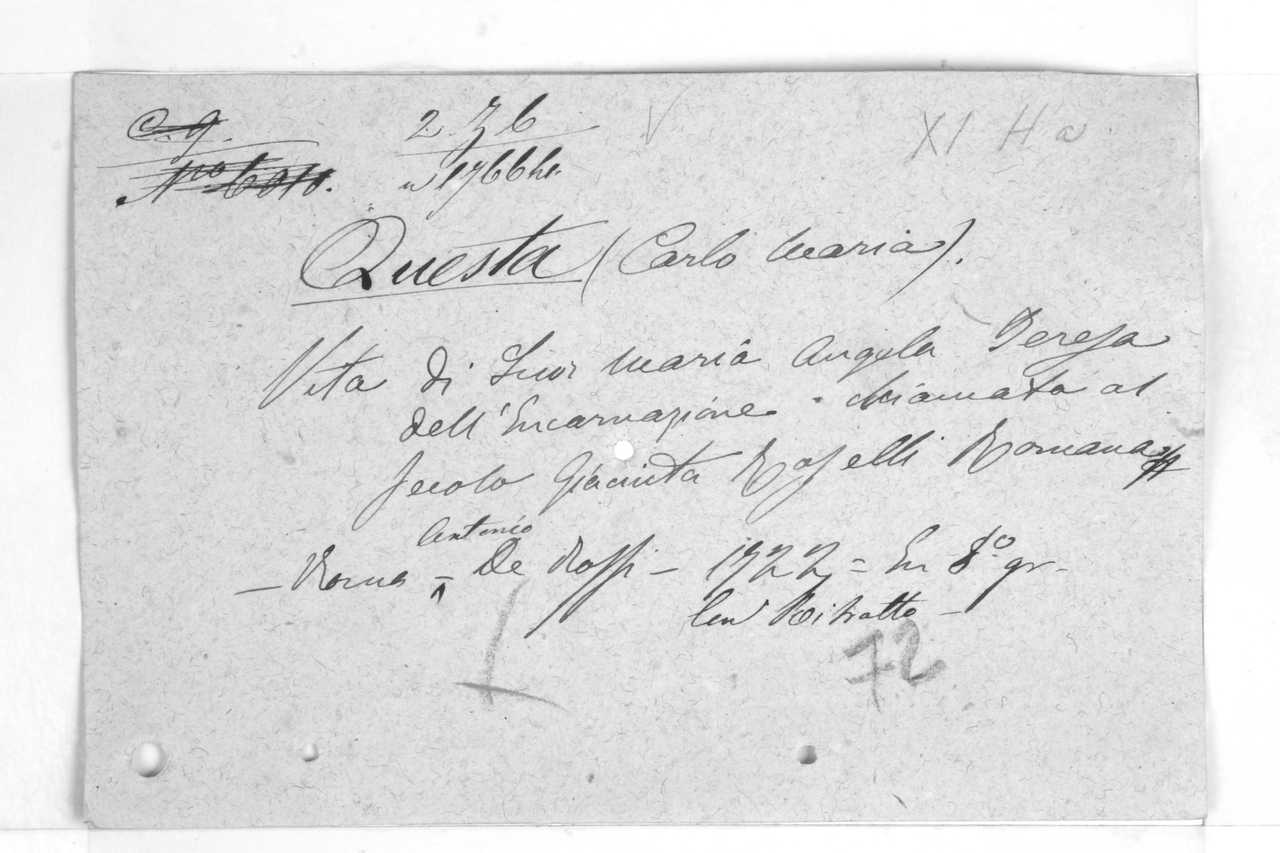 C. g.
2 7 6
V
XI Ha
N.ro 6010.
n 1766 bis
Questa (Carlo Maria).
Vita di Suor Maria Angela Teresa
dell'Encarnazione - chiamata al
secolo Giacinta Roselli Romana
Antonio
- Roma = De Rossi - 1722 = En 8.o gr.
Con Ritratto -
72